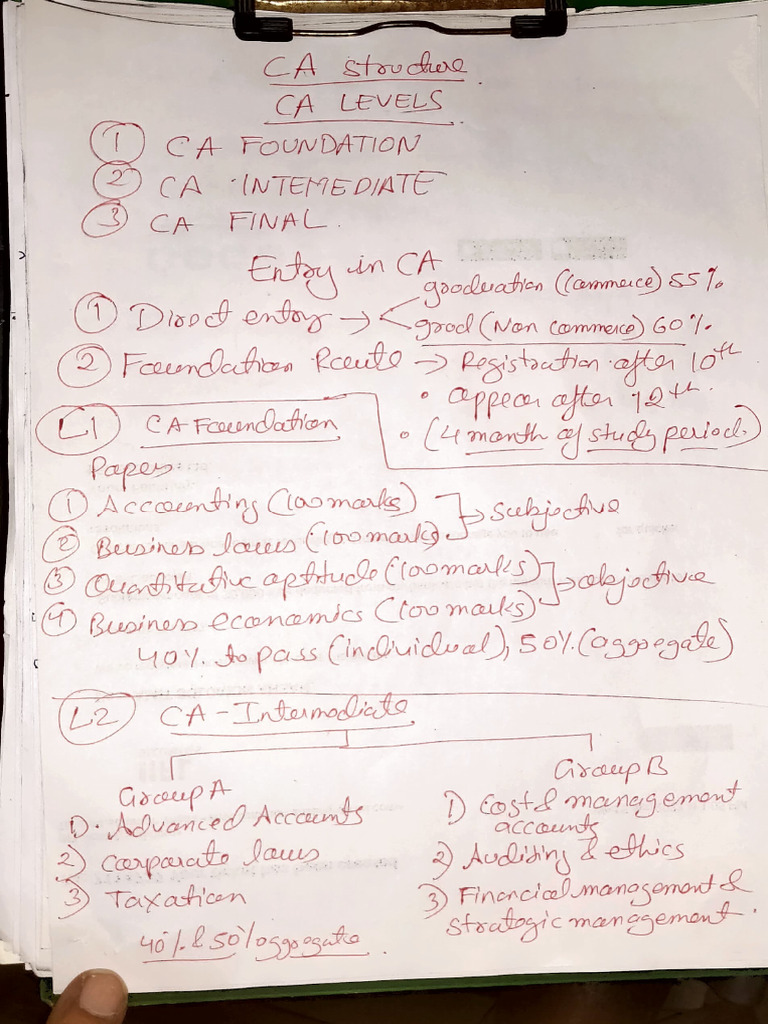 CA structure
CA LEVELS
① CA FOUNDATION
② CA INTEMEDIATE
③ CA FINAL.
Entry in CA
① Direct entry → graduation (Commerce) 55%
grad (Non commerce) 60%.
② Foundation Route → Registration after 10th
• appear after 12th.
• (4 month of study period.)
L1 CA Foundation
Papers:
① Accounting (100 marks)
② Business laws (100 marks) → subjective
③ Quantitative aptitude (100 marks)
④ Business economics (100 marks) → objective
40% to pass (individual), 50% (aggregate)
L2 CA - Intermediate
Group A
1). Advanced Accounts
2) corporate laws
3) Taxation
40% & 50% aggregate.
Group B
1) Cost & management
accounts
2) Auditing & ethics
3) Financial management &
strategic management.